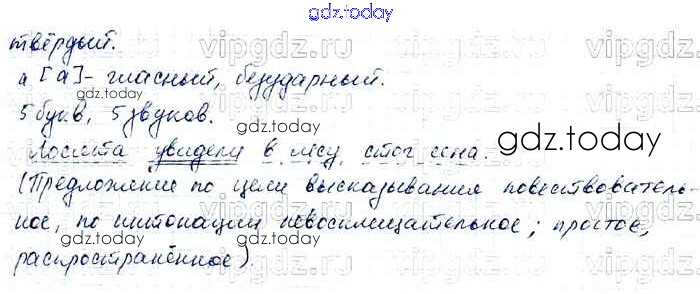 gdz.today
твёрдый.
а [а] - гласный, безударный.
5 букв, 5 звуков.
Лосята увидели в лесу стог сена.
(Предложение по цели высказывания повествователь-
ное, по интонации невосклицательное; простое,
распространённое).
gdz.today
gdz.today
gdz.today
gdz.today
vipgdz.ru
vipgdz.ru
vipgdz.ru
vipgdz.ru